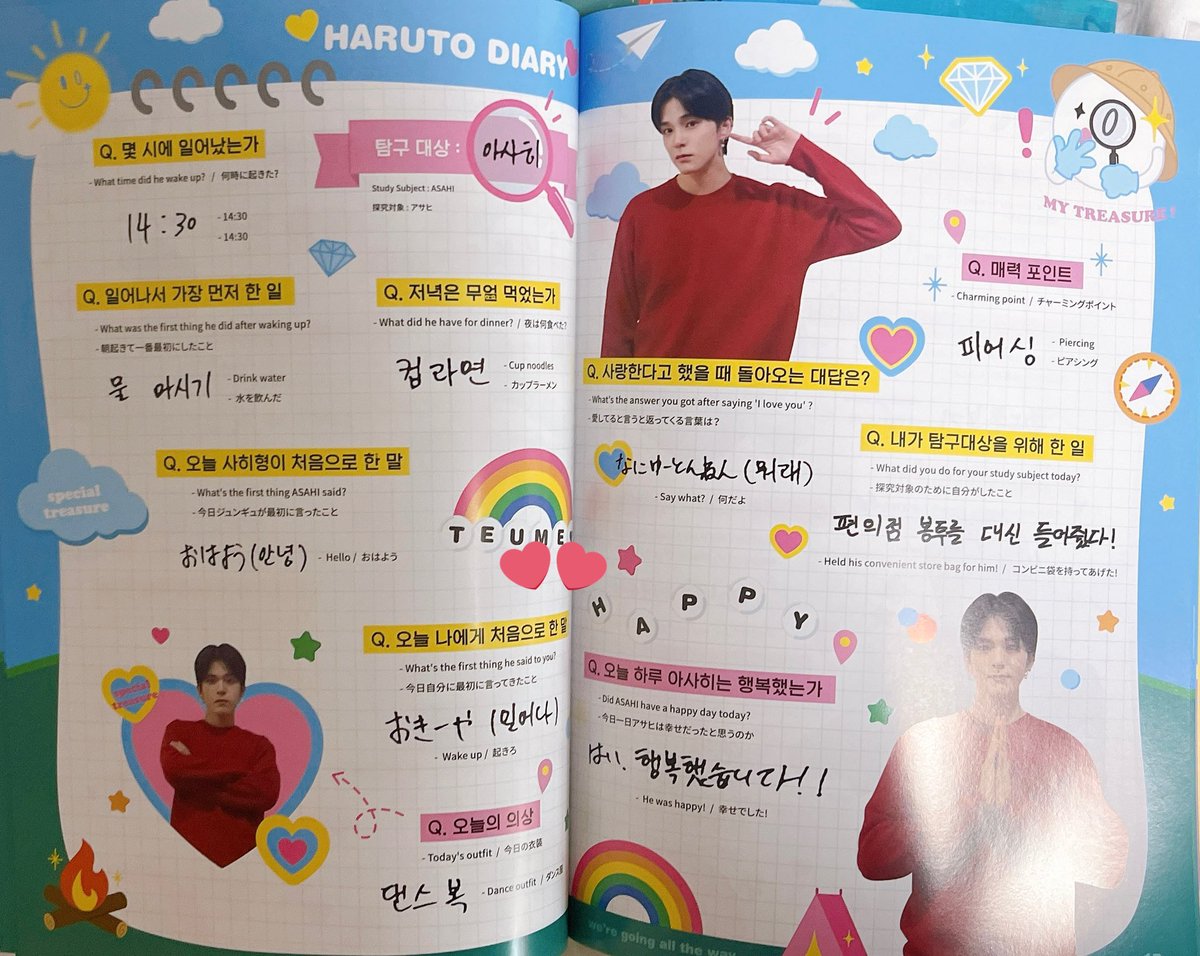 HARUTO DIARY
Q. 몇 시에 일어났는가
- What time did he wake up? / 何時に起きた?
14:30
- 14:30
- 14:30
탐구 대상 : 아사히
Study Subject : ASAHI
探究対象 : アサヒ
Q. 일어나서 가장 먼저 한 일
- What was the first thing he did after waking up?
- 朝起きて一番最初にしたこと
물 마시기
- Drink water
- 水を飲んだ
Q. 저녁은 무얼 먹었는가
- What did he have for dinner? / 夜は何食べた?
컵라면
- Cup noodles
- カップラーメン
Q. 오늘 사히형이 처음으로 한 말
- What's the first thing ASAHI said?
- 今日ジュンギュが最初に言ったこと
おはよう (안녕)
- Hello / おはよう
special
treasure
TEUME
Q. 오늘 나에게 처음으로 한 말
- What's the first thing he said to you?
- 今日自分に最初に言ってきたこと
おきーや (일어나)
- Wake up / 起きろ
special
treasure
Q. 오늘의 의상
- Today's outfit / 今日の衣装
댄스복
- Dance outfit / ダンス服
MY TREASURE !
Q. 매력 포인트
- Charming point / チャーミングポイント
피어싱
- Piercing
- ピアシング
Q. 사랑한다고 했을 때 돌아오는 대답은?
- What's the answer you got after saying 'I love you' ?
- 愛してると言うと返ってくる言葉は？
(뭐래)
- Say what? / 何だよ
Q. 내가 탐구대상을 위해 한 일
- What did you do for your study subject today?
- 探究対象のために自分がしたこと
편의점 봉투를 대신 들어줬다!
- Held his convenient store bag for him! / コンビニ袋を持ってあげた!
HAPPY
Q. 오늘 하루 아사히는 행복했는가
- Did ASAHI have a happy day today?
- 今日一日アサヒは幸せだったと思うのか
はい! 행복했습니다!!
- He was happy! / 幸せでした!
we're going all the way